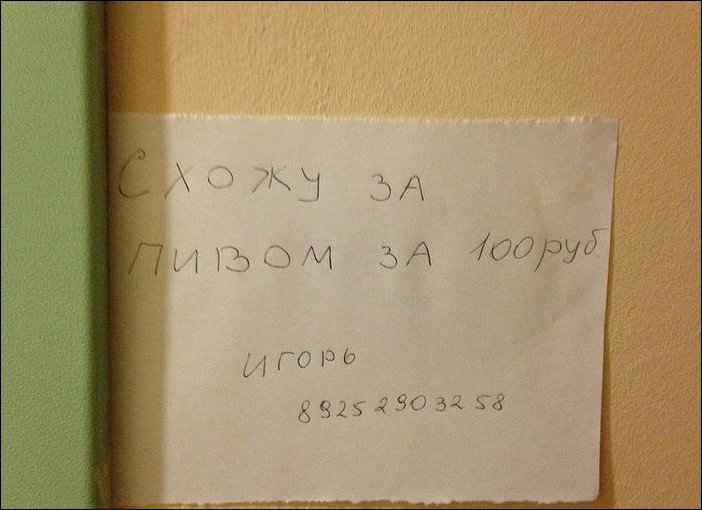 СХОЖУ ЗА
ПИВОМ ЗА 100 руб
ИГОРЬ
89252903258